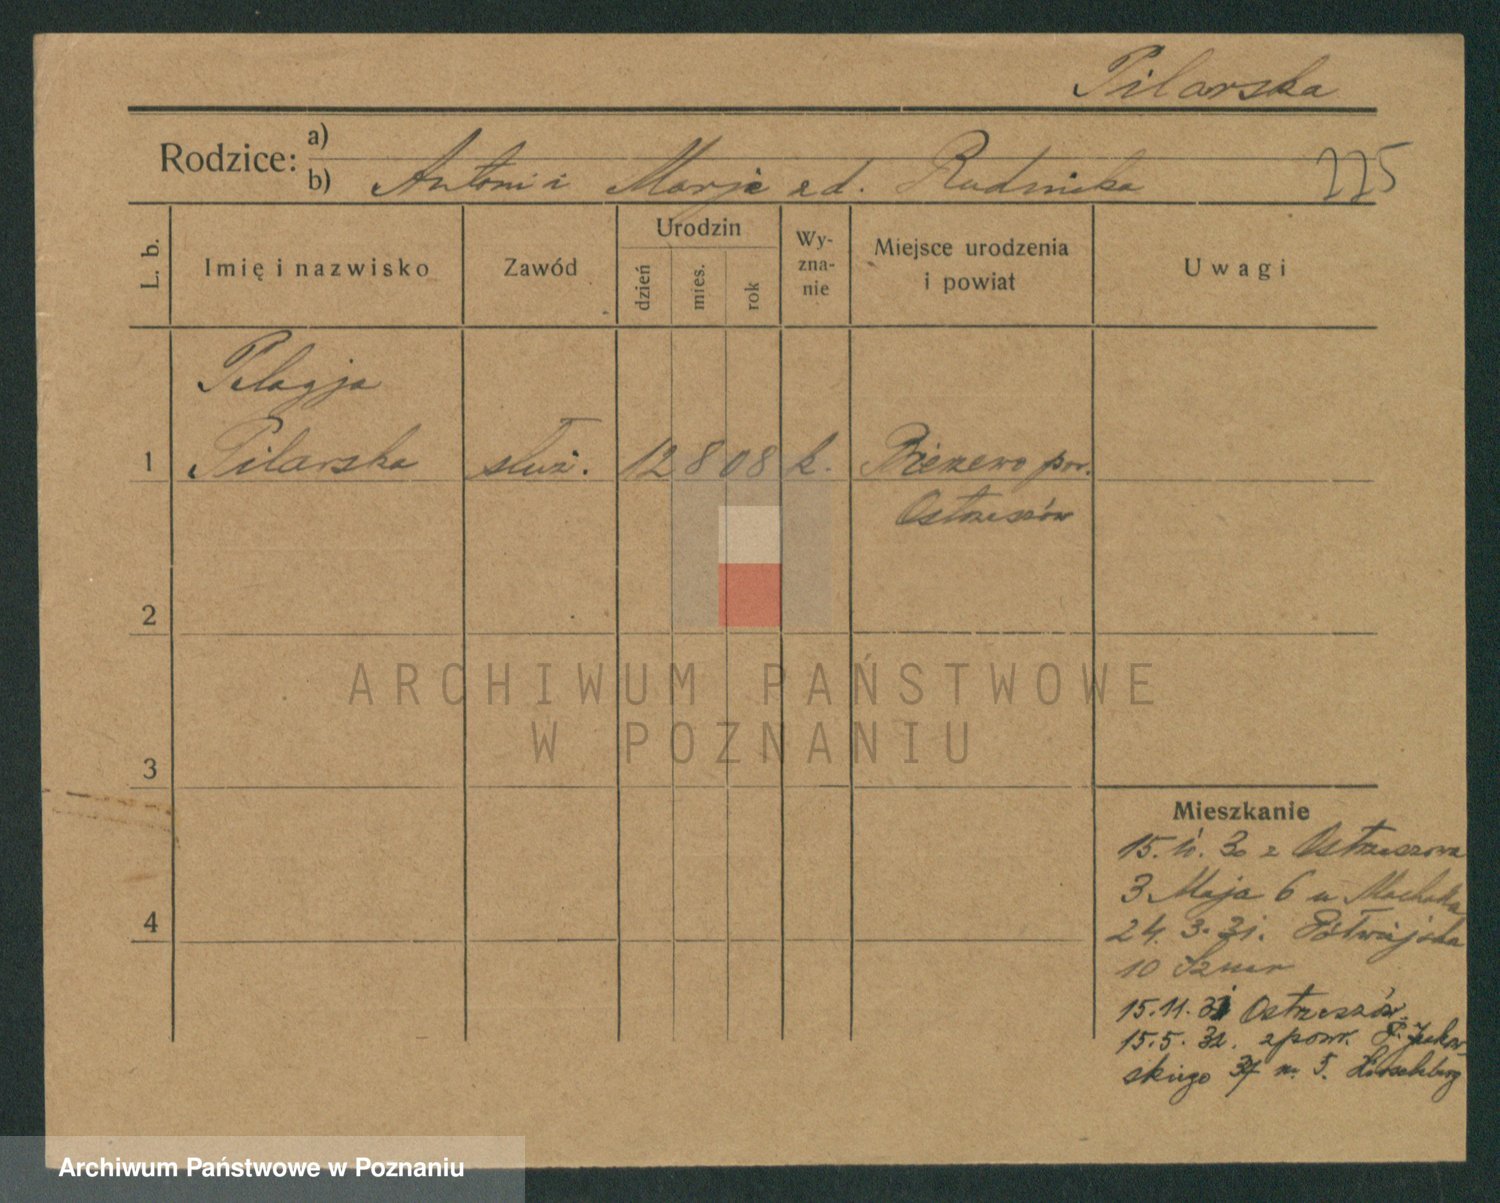 Pilarska
Rodzice: a)
b) Antoni i Marja z d. Rudnicka
225
L. b. Imię i nazwisko Zawód Urodzin dzień mies. rok Wyznanie Miejsce urodzenia i powiat Uwagi
Pelagja
1 Pilarska służ. 12 8 08 k. pow.
Ostrzeszów
2
ARCHIWUM PAŃSTWOWE
W POZNANIU
3
Mieszkanie
15. 11. 30 z Ostrzeszowa
3 Maja 6 u
24. 3. 31. Półwiejska
10
15.11.31 Ostrzeszów
15.5. 32. z pow.
skiego 37 m. 5.
4
Archiwum Państwowe w Poznaniu